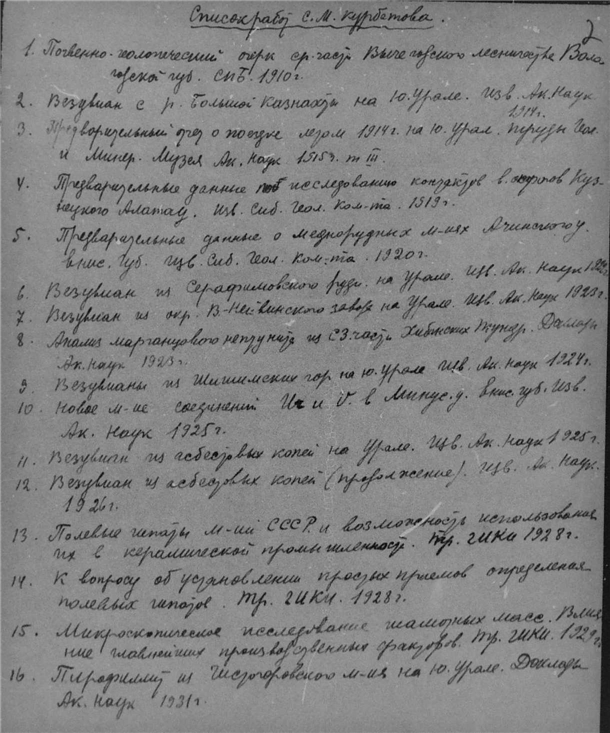 2
Список работ С.М. Курбатова.
1. Почвенно-геологический очерк ср. части Вычегодского лесничества Воло-
годской губ. СПБ. 1910г.
2. Везувиан с р. Большой Кизнахты на Ю. Урале. Изв. Ак. Наук
1914г.
3. Предварительный отчет о поездке летом 1914г. на Ю. Урал. Труды Геол.
и Минер. Музея Ак. Наук 1915г. т III.
4. Предварительные данные по исследованию контактов в. отрогов Куз-
нецкого Алатау. Изв. Сиб. Геол. Ком-та. 1919г.
5. Предварительные данные о меднорудных м-иях Ачинского у.
Енис. Губ. Изв. Сиб. Геол. Ком-та. 1920г.
6. Везувиан из Серафимовского рудн. на Урале. Изв. Ак. Наук
7. Везувиан из окр. В-Нейвинского завода на Урале. Изв. Ак. Наук 1923г.
8. Анализ марганцового пектунита из СЗ. части Хибинских Тундр. Доклады
Ак. Наук 1923г.
9. Везувианы из Шишимских гор на Ю. Урале Изв. Ак. Наук 1924г.
10. Новое м-ие соединений U и V. в Минус. у. Енис. губ. Изв.
Ак. Наук 1925г.
11. Везувиан из асбестовых копей на Урале. Изв. Ак. Наук 1925г.
12. Везувиан из асбестовых копей (продолжение). Изв. Ак. Наук.
1926г.
13. Полевые шпаты м-ий СССР и возможность использования
их в керамической промышленности. Тр. ГИКИ 1928г.
14. К вопросу об установлении простых приемов определения
полевых шпатов. Тр. ГИКИ. 1928г.
15. Микроскопическое исследование шамотных масс. Влия-
ние главнейших производственных факторов. Тр. ГИКИ. 1929г.
16. Пирофиллит из Чистогоровского м-ия на Ю. Урале. Доклады
Ак. Наук 1931г.